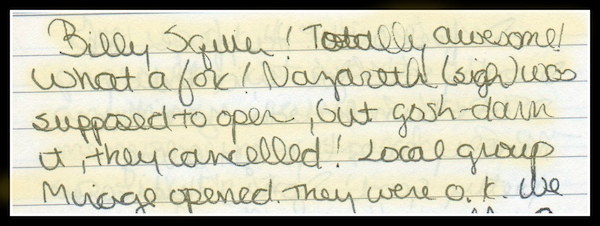 Billy Squier! Totally awesome!
What a fox! Nazareth (sigh) was
supposed to open, but gosh-darn
it, they cancelled! Local group
Mirage opened. They were o.k. We